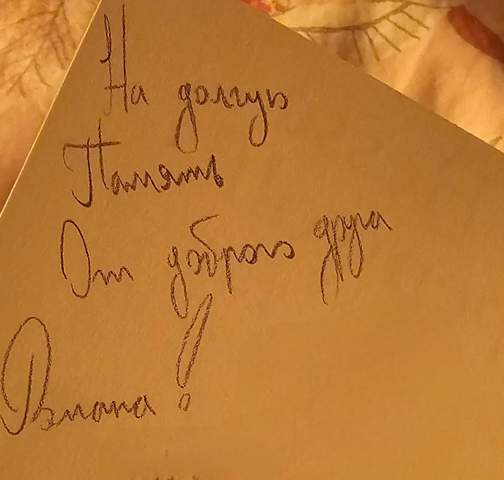 На долгую
Память
От доброго друга
Романа!